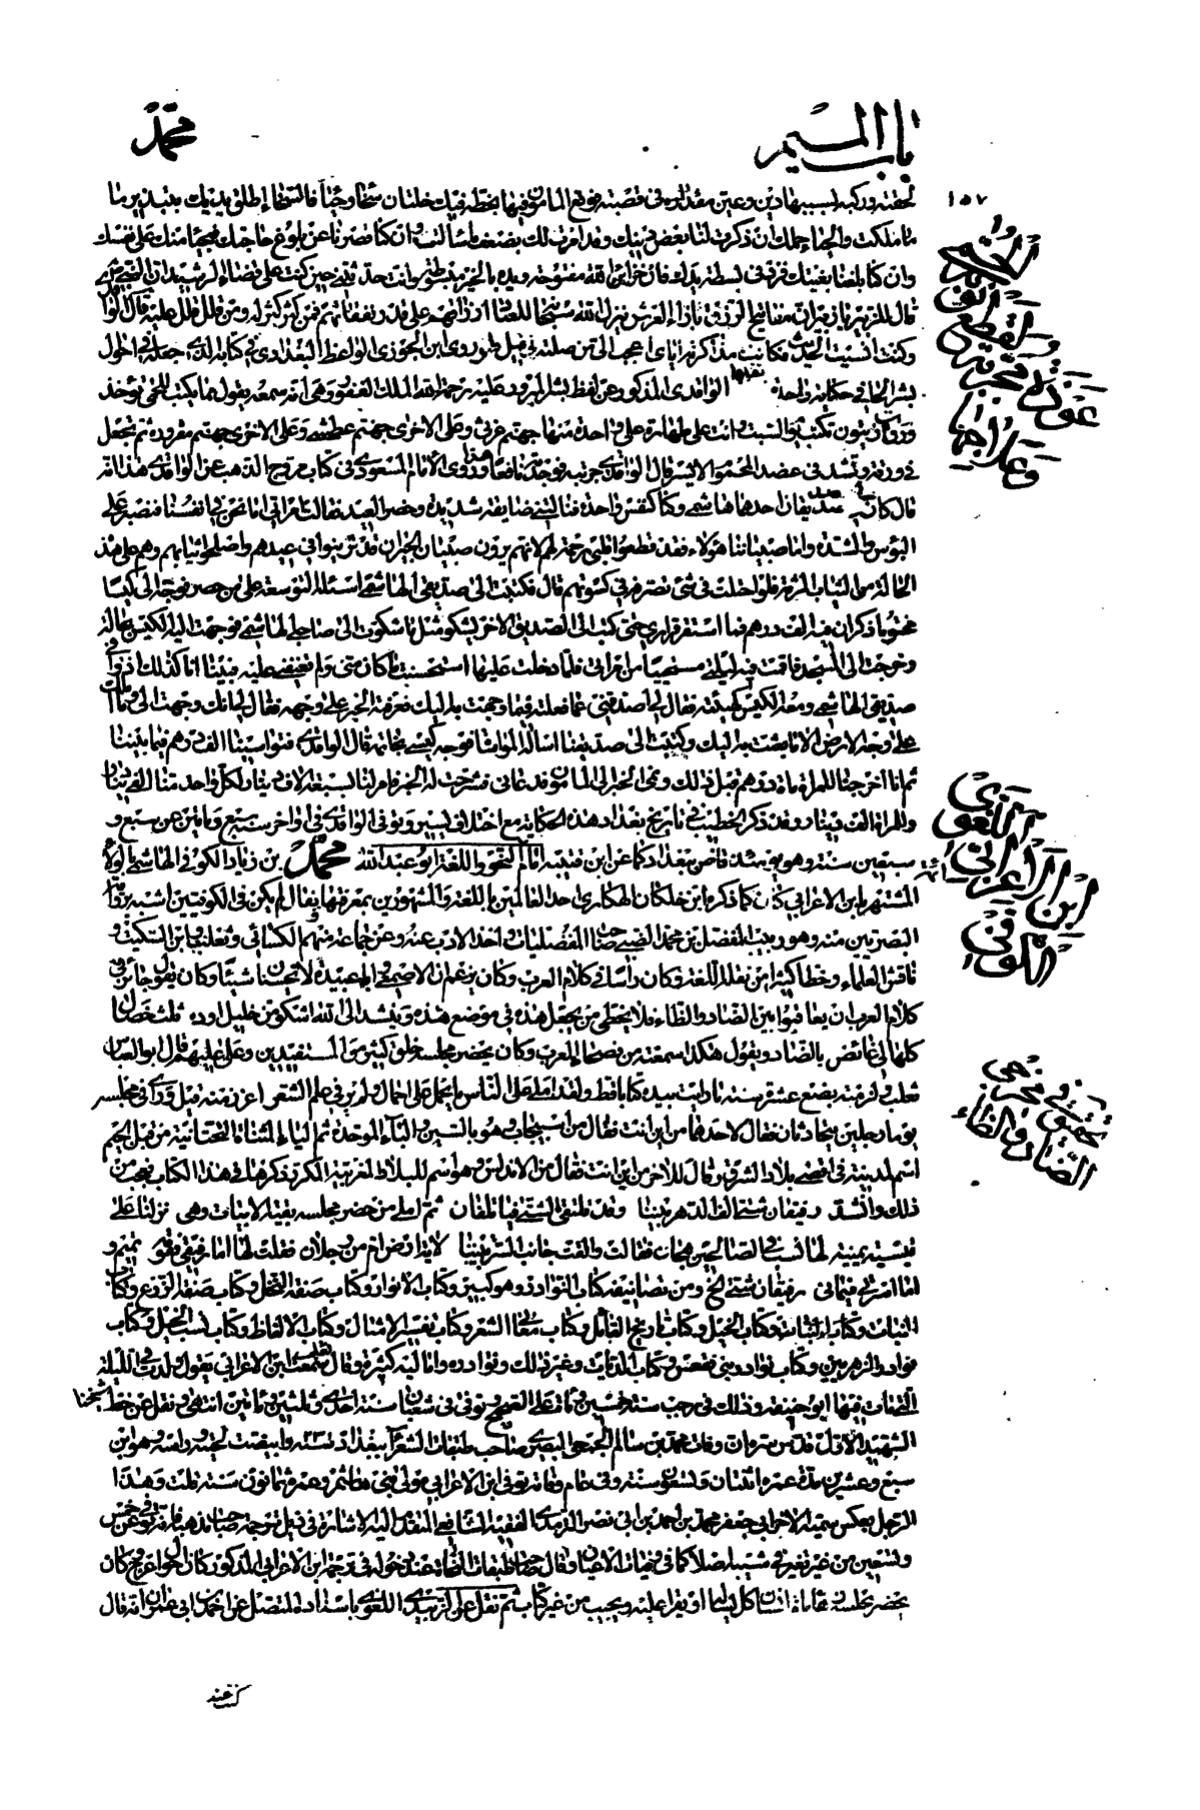 باب الميم
محمد
١٥٧
لحقته وركبه بسببها دين وعين مقداره في قصته فوقع المأمون فيها بخطه فيك خلتان سخاء وحياء فالسخاء اطلق يديك بتبذير ما
ما ملكت والحياء حملك ان ذكرت لنا بعض دينك وقد امرنا لك بضعف ما سألت وان كنا قصرنا عن بلوغ حاجتك فبجنايتك على نفسك
وان كنا بلغنا بغيتك فزد في بسطة يدك فان خزائن الله مفتوحة ويده بالخير مبسوطة وانت حدثتني حين كنت على قضاء الرشيد ان النبي
قال للزبير يا زبير ان مفاتيح الرزق بازاء العرش ينزل الله سبحانه للعباد ارزاقهم على قدر نفقاتهم فمن كثر كثر له ومن قلل قلل عليه قال الواقدي
وكنت انسيت الحديث فكانت مذاكرته اياي اعجب الي من صلته وروى ابن الجوزي الواعظ البغدادي في كتابه الذي جعله في احوال
بشر الحافي حكاية واحدة الواقدي المذكور
ورق زيتون تكتب يوم السبت وانت على طهارة على واحدة منها جهنم غرثى وعلى الاخرى جهنم عطشى وعلى الاخرى جهنم مقرورة ثم تجعل
في ورقة وتشد في عضد المحموم الايسر قال الواقدي جربته فوجدته نافعا وروى الامام المسعودي في كتاب مروج الذهب عن الواقدي هذا انه
قال كان لي صديقان احدهما هاشمي وكنا كنفس واحدة فنالتني ضائقة شديدة وحضر العيد فقالت امرأتي اما نحن في انفسنا فنصبر على
البؤس والشدة واما صبياننا هؤلاء فقد قطعوا قلبي رحمة لهم لانهم يرون صبيان الجيران قد تزينوا في عيدهم واصلحوا ثيابهم وهم على هذه
الحالة من الثياب الرثة فلو احتلت في شيء تصرفه في كسوتهم قال فكتبت الى صديقي الهاشمي اسئله التوسعة علي بما حضر فوجه الي كيسا
مختوما ذكر ان فيه الف درهم فما استقر قراري حتى كتب الي الصديق الاخر يشكو مثل ما شكوت الى صاحبي الهاشمي فوجهت اليه الكيس بحاله
وخرجت الى المسجد فاقمت فيه ليلتي مستحييا من امرأتي فلما دخلت عليها استحسنت ما كان مني ولم تعنفني عليه فبينا انا كذلك اذ وافى
صديقي الهاشمي ومعه الكيس كهيئته فقال لي اصدقني عما فعلته فيما وجهت به اليك فعرفته الخبر على وجهه فقال لي انك وجهت الي وما املك
على وجه الارض الا ما بعثت به اليك وكتبت الى صديقنا اسأله المواساة فوجه كيسي بخاتمه قال الواقدي فتواسينا الالف درهم فيما بيننا
ثم انا اخرجنا للمرأة مائة درهم قبل ذلك ونمى الخبر الى المأمون فدعاني فشرحت له الخبر فامر لنا بسبعة الاف دينار لكل واحد منا الفي دينار
وللمرأة الف دينار وقد ذكر الخطيب في تاريخ بغداد هذه الحكاية مع اختلاف يسير وتوفي الواقدي في اواخر سنة سبع ومأتين عن سبع و
سبعين سنة وهو يومئذ قاض ببغداد كما عن ابن قتيبة امام النحو واللغة ابو عبد الله محمد بن زياد الكوفي الهاشمي
المشتهر بابن الاعرابي كان كما ذكره ابن خلكان الهكاري احد العالمين باللغة والمشهورين بمعرفتها يقال لم يكن في الكوفيين اشبه برواية
البصريين منه وهو ربيب المفضل بن محمد الضبي صاحب المفضليات واخذ الادب عنه وعن جماعة منهم الكسائي وثعلب وابن السكيت و
ناقش العلماء وخطأ كثيرا من نقلة اللغة وكان رأسا في كلام العرب وكان يزعم ان الاصمعي وابا عبيدة لا يحسنان شيئا وكان يقول جائز في
كلام العرب ان يعاقبوا بين الضاد والظاء فلا يخطى من يجعل هذه في موضع هذه وينشد الى الله اشكو من خليل اوده ثلث خصال
كلها لي غائض بالضاد ويقول هكذا سمعته من فصحاء العرب وكان يحضر مجلسه خلق كثير من المستفيدين وعلى عليهم قال ابو العباس
ثعلب لزمته بضع عشرة سنة ما رأيت بيده كتابا قط ولقد املى على الناس ما يحمل على اجمال ولم ير في علم الشعر اغزر منه قيل ورأى في مجلسه
يوما رجلين يتحادثان فقال لاحدهما من اين انت فقال من اسبيجاب وهو بالسين والباء الموحدة ثم الياء المثناة التحتانية من قبل الجيم
اسم لمدينة في اقصى بلاد الشرق وقال للاخر من اين انت فقال من الاندلس وهو اسم للبلاد المغربية المكرر ذكرها في هذا الكتاب فعجب من
ذلك وانشد رفيقان شتى الف الدهر بيننا وقد يلتقي الشتى فيأتلفان ثم املى من حضر مجلسه بقية الابيات وهي نزلنا على
قيسية يمنية لها نسب في الصالحين هجان فقالت وارخت جانب الستر بيننا لاية ارض ام من الرجلان فقلت لها اما رفيقي فقومه تميم و
اما اسرتي فيماني رفيقان شتى الخ ومن تصانيفه كتاب النوادر وهو كبير وكتاب الانواء وكتاب صفة النخل وكتاب صفة الزرع وكتاب
النبات وكتاب الخيل وكتاب تاريخ القبائل وكتاب معاني الشعر وكتاب تفسير الامثال وكتاب الالفاظ وكتاب نسب الخيل وكتاب
نوادر الزهريين وكتاب نوادر بني فقعس وكتاب الذباب وغير ذلك ونوادره واماليه كثيرة وقال ثعلب سمعت ابن الاعرابي يقول ولدت في الليلة
التي مات فيها ابو حنيفة وذلك في رجب سنة خمسين ومائة على الصحيح وتوفي في شعبان سنة احدى وثلثين ومأتين انتهى ونقل عن خط شيخنا
الشهيد الاول قدس سره ان وفات محمد بن سلام الجمحي البصري صاحب طبقات الشعراء ببغداد سنة وابيضت لحيته ورأسه وهو ابن
سبع وعشرين مدة عمره اثنتان وتسعون سنة وفي عام وفاته توفي ابن الاعرابي مولى بني هاشم وعمره ثمانون سنة قلت وهذا
الرجل بعكس سميه الاخر ابي جعفر محمد بن احمد بن ابي نصر الترمذي الفقيه الشافعي المتقدم اليه الاشارة في ذيل ترجمة صاحب مذهبه فانه توفي عن خمس
وتسعين من غير تغير في شيبه اصلا كما في وفيات الاعيان وقال صاحب طبقات النحاة عند دخوله في ترجمة ابن الاعرابي المذكور كان احول اعرج كان
يحضر مجلسه زهاء مائة انسان كل يسأله او يقرأ عليه ويجيب من غير كتاب ثم نقل عن الزبيدي اللغوي باسناده المتصل عن احمد بن ابي عمران انه قال
عوذة مجربة
اللغوي
ابن الاعرابي
الكوفي
تحقيق في مخرجي
الضاد والظاء
كنت عند